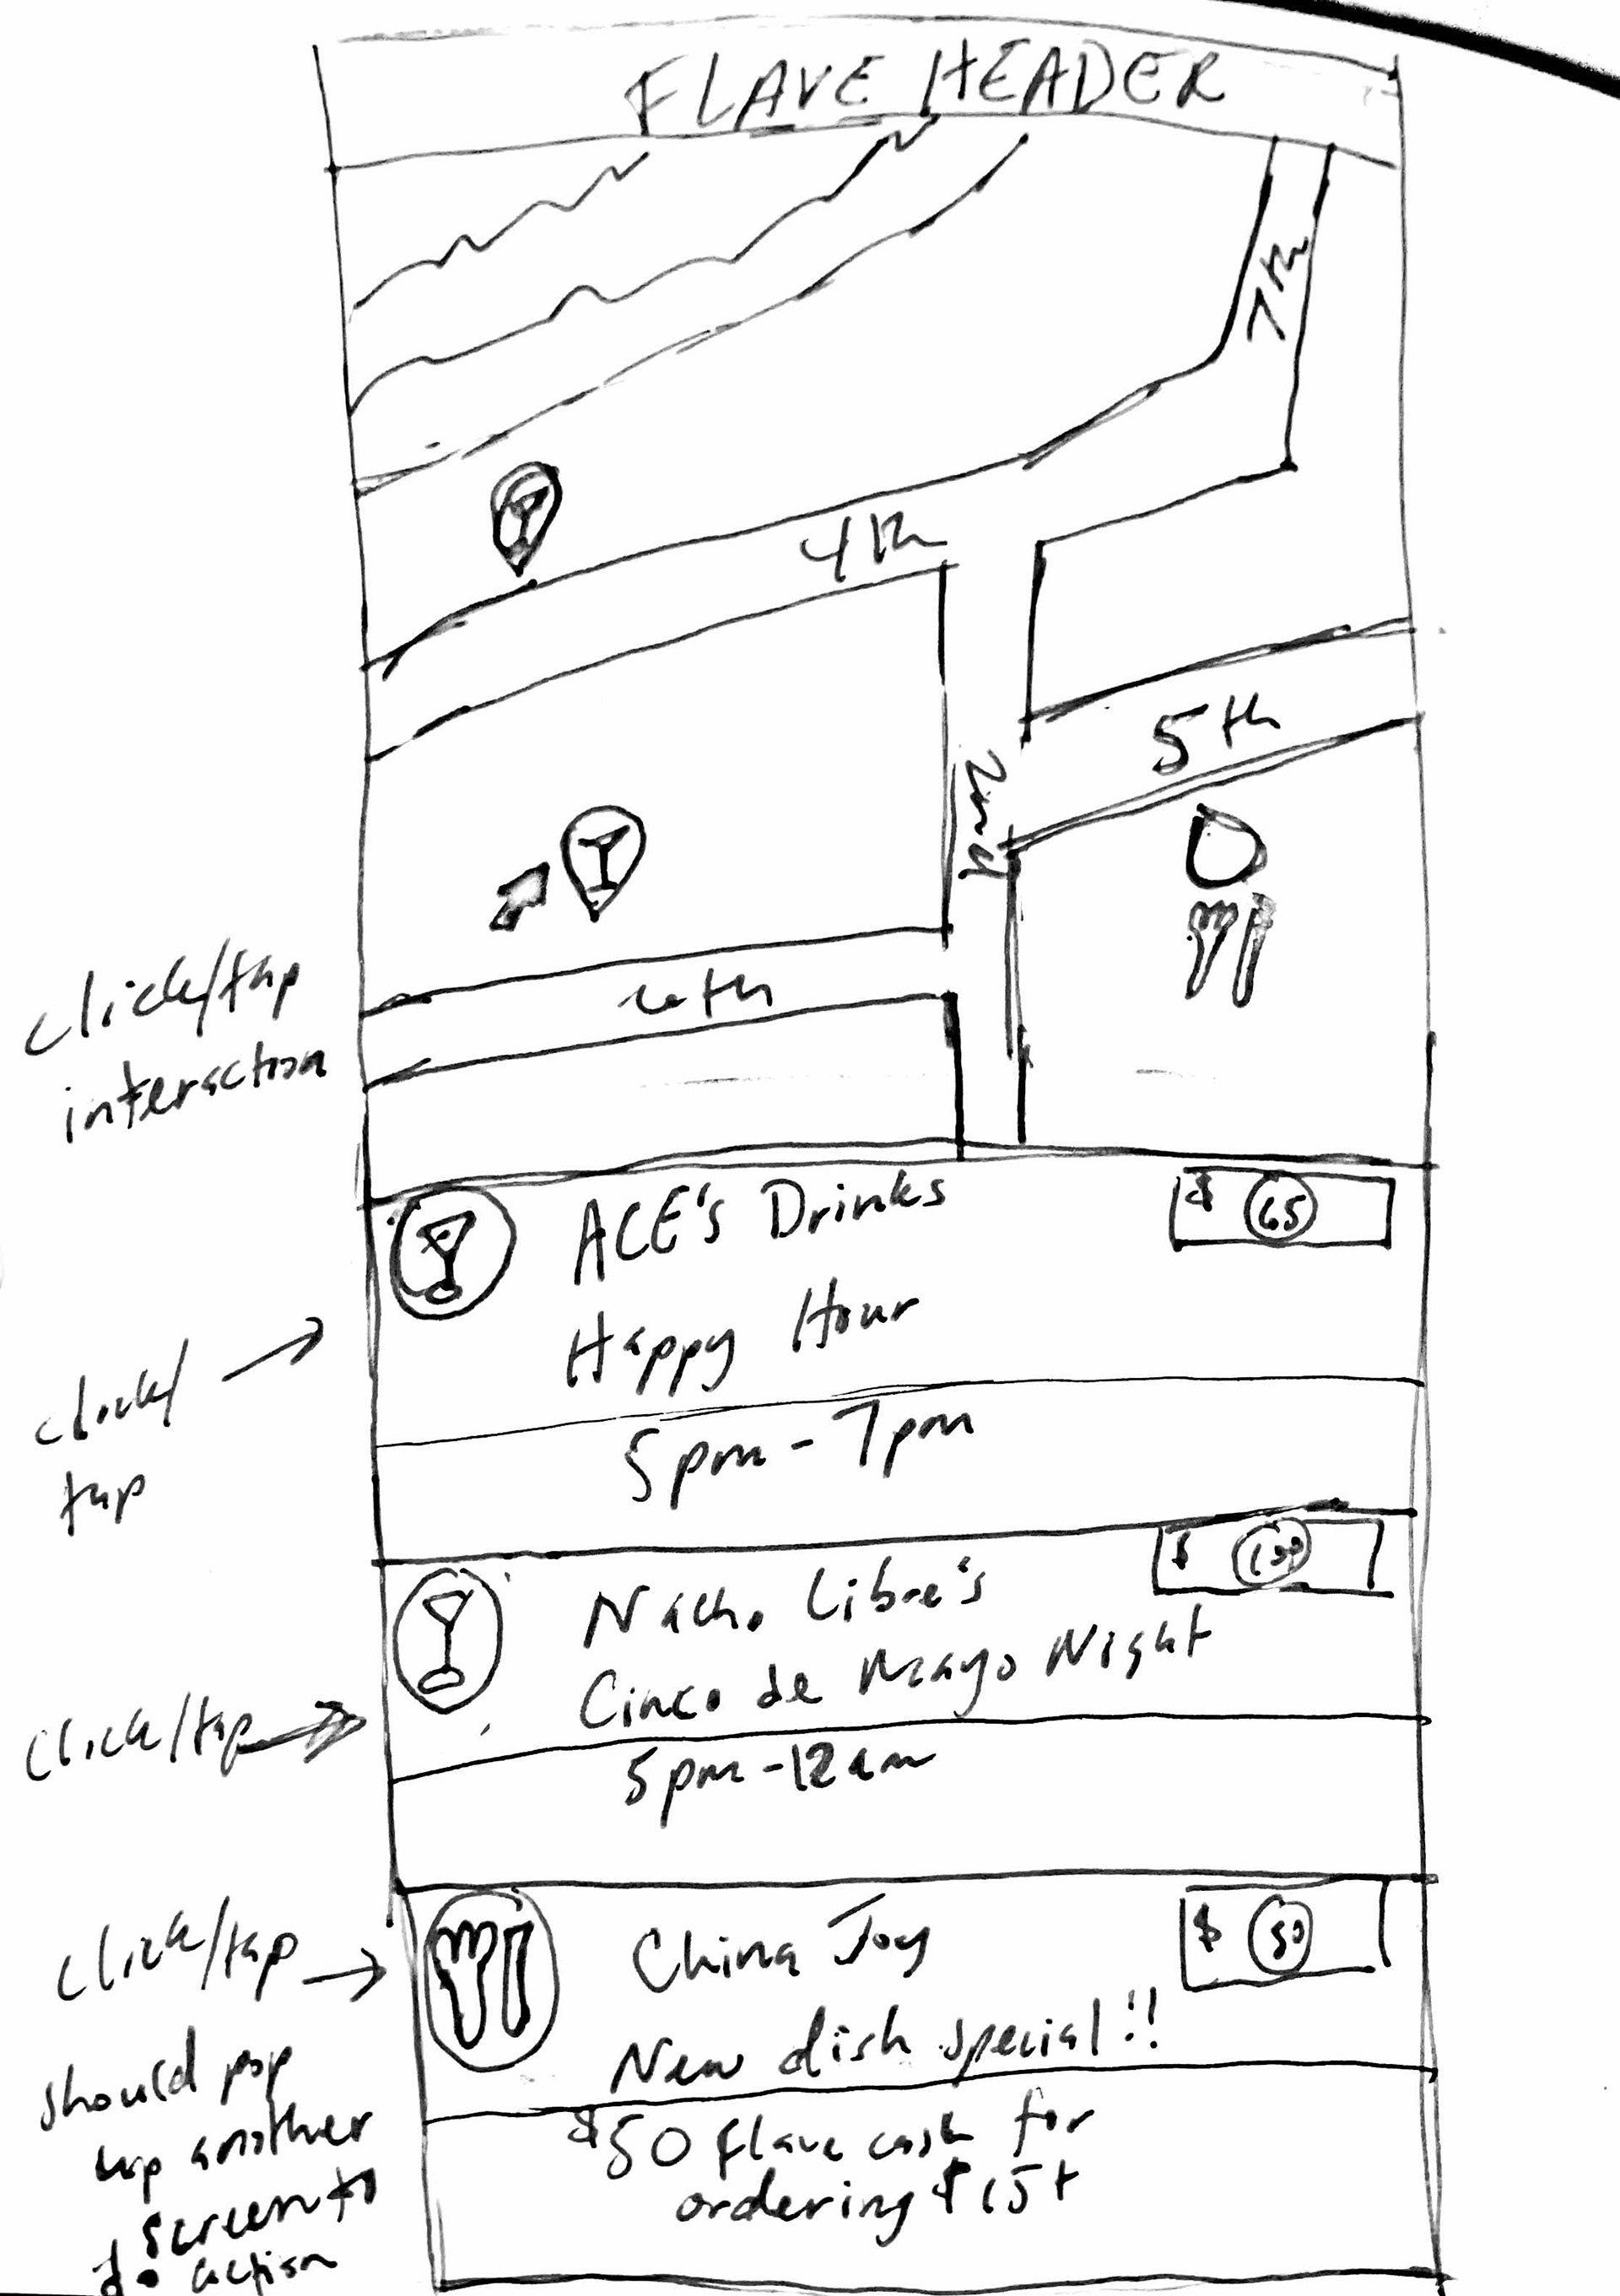 FLAVE HEADER
7th
4th
5th
2nd
click/tap
interaction
ACE's Drinks
$ 65
Happy Hour
click/
tap
5pm - 7pm
Nacho Libre's
$ 100
Cinco de Mayo Night
click/tap
5pm - 12am
China Joy
$ 50
click/tap
New dish special!!
should pop
up another
screen to
do action
$50 flave cash for
ordering $15+